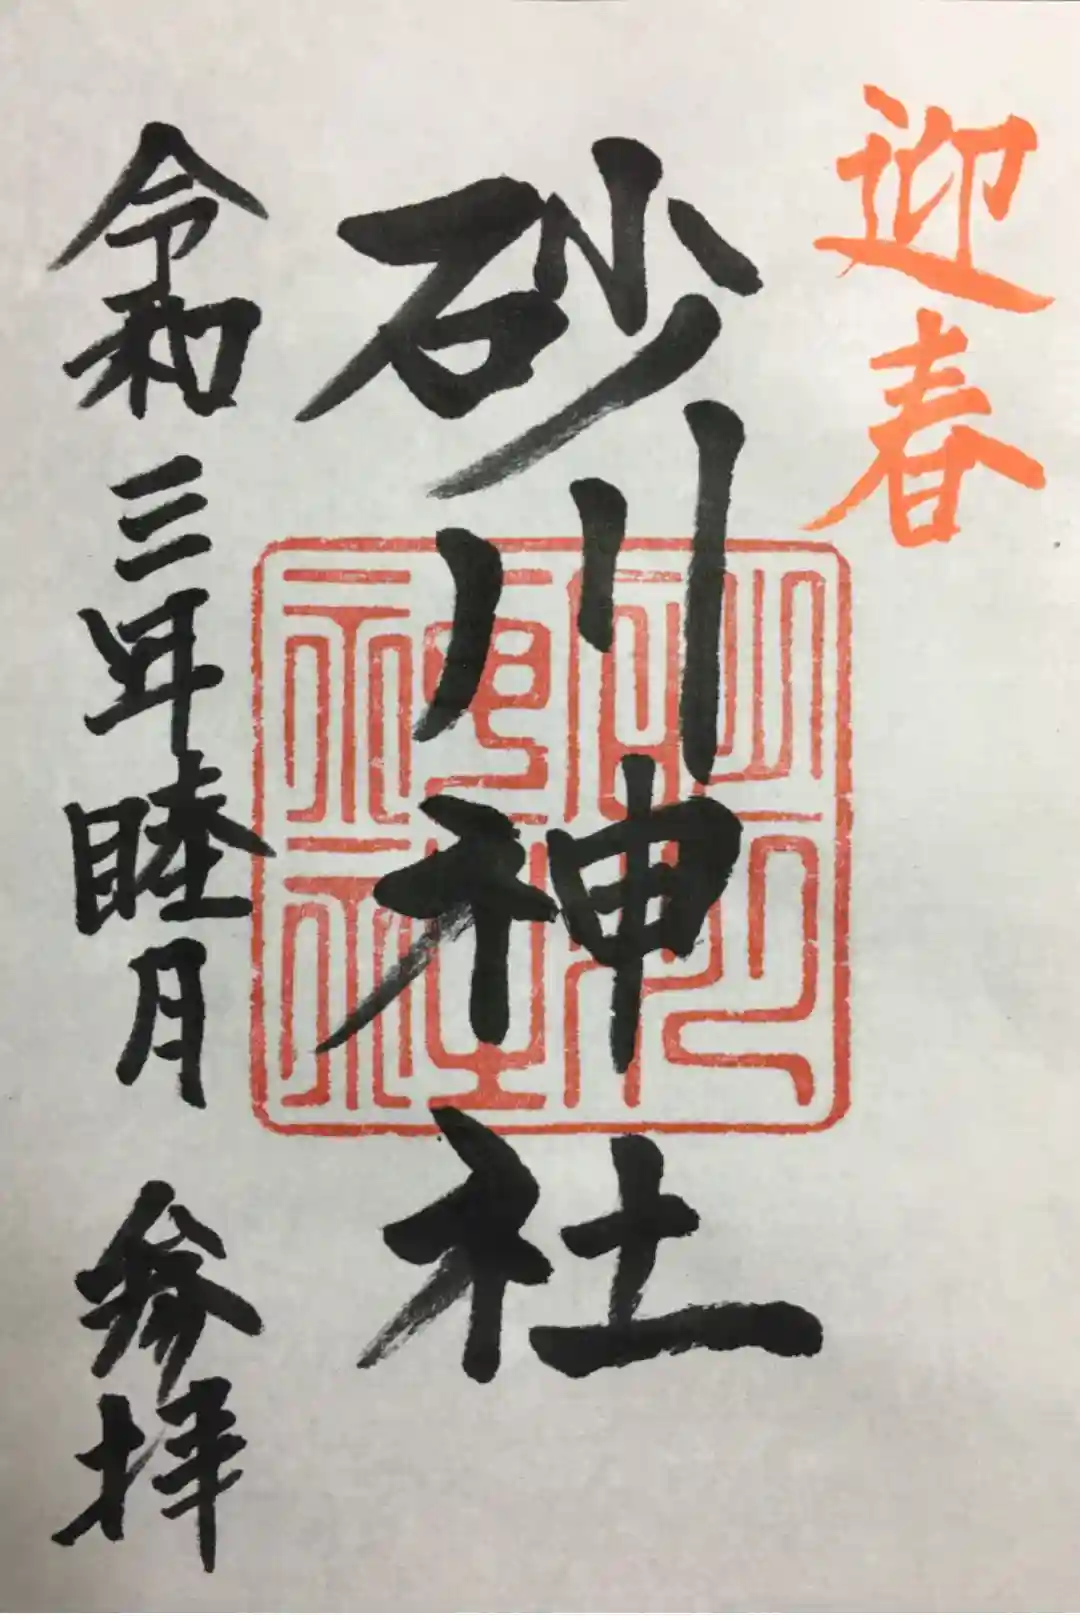 迎春
砂川神社
砂川神社
令和三年睦月 参拝